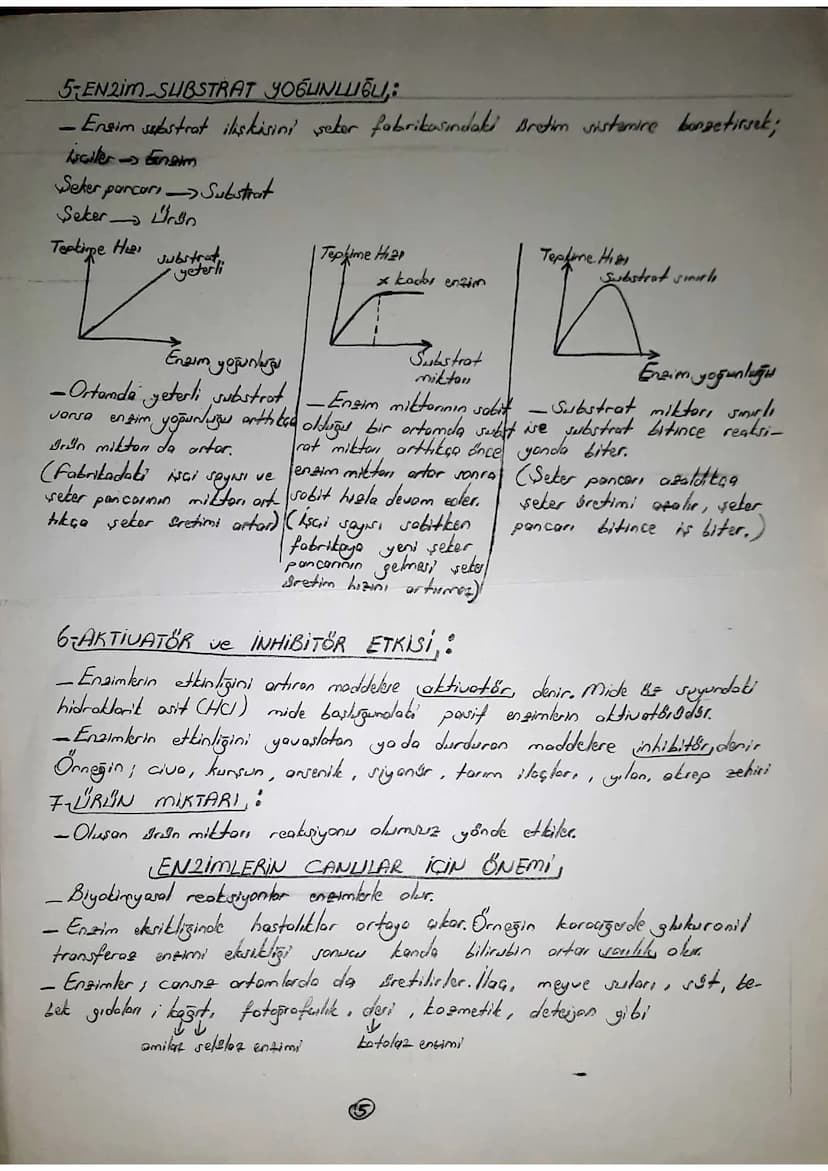 5-ENZİM-SUBSTRAT YOĞUNLUĞU,:
- Enzim substrat ilişkisini şeker fabrikasındaki üretim sistemine benzetirsek;
İşçiler → Enzim
Şeker pancarı → Substrat
Şeker → Ürün
Tepkime Hızı
substrat
yeterli
Enzim yoğunluğu
- Ortamda yeterli substrat
varsa enzim yoğunluğu arttıkça
ürün miktarı da artar.
(Fabrikadaki işçi sayısı ve
şeker pancarının miktarı art-
tıkça şeker üretimi artar)
Tepkime Hızı
x kadar enzim
Substrat
miktarı
- Enzim miktarının sabit
olduğu bir ortamda subst
rat miktarı arttıkça önce
enzim miktarı artar sonra
sabit hızla devam eder.
(İşçi sayısı sabitken
fabrikaya yeni şeker
pancarının gelmesi şeker
üretim hızını artırmaz)
Tepkime Hızı
Substrat sınırlı
Enzim yoğunluğu
- Substrat miktarı sınırlı
ise substrat bitince reaksi-
yonda biter.
(Şeker pancarı azaldıkça
şeker üretimi azalır, şeker
pancarı bitince iş biter.)
6-AKTİVATÖR ve İNHİBİTÖR ETKİSİ,:
- Enzimlerin etkinliğini artıran maddelere aktivatör, denir. Mide öz suyundaki
hidroklorik asit (HCl) mide boşluğundaki pasif enzimlerin aktivatörüdür.
- Enzimlerin etkinliğini yavaşlatan yada durduran maddelere inhibitör, denir
Örneğin; civa, kurşun, arsenik, siyanür, tarım ilaçları, yılan, akrep zehiri
7-ÜRÜN MİKTARI,:
- Oluşan ürün miktarı reaksiyonu olumsuz yönde etkiler.
ENZİMLERİN CANLILAR İÇİN ÖNEMİ
- Biyokimyasal reaksiyonlar enzimlerle olur.
- Enzim eksikliğinde hastalıklar ortaya çıkar. Örneğin karaciğerde glukuronil
transferaz enzimi eksikliği sonucu kanda bilirubin artar sarılık olur.
- Enzimler; cansız ortamlarda da üretilirler. İlaç, meyve suları, süt, be-
bek gıdaları; kağıt, fotoğrafçılık, deri, kozmetik, deterjan gibi
amilaz selüloz enzimi
katalaz enzimi
5